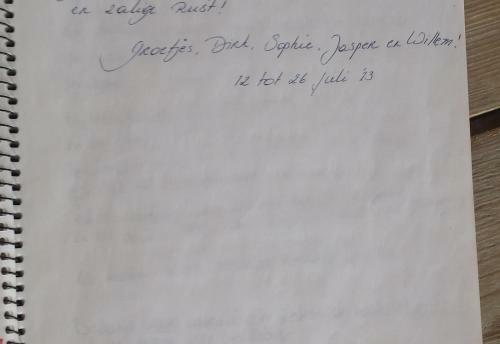 en zalige Rust!
Groetjes, Dirk, Sophie, Jasper en Willem!
12 tot 26 juli '13